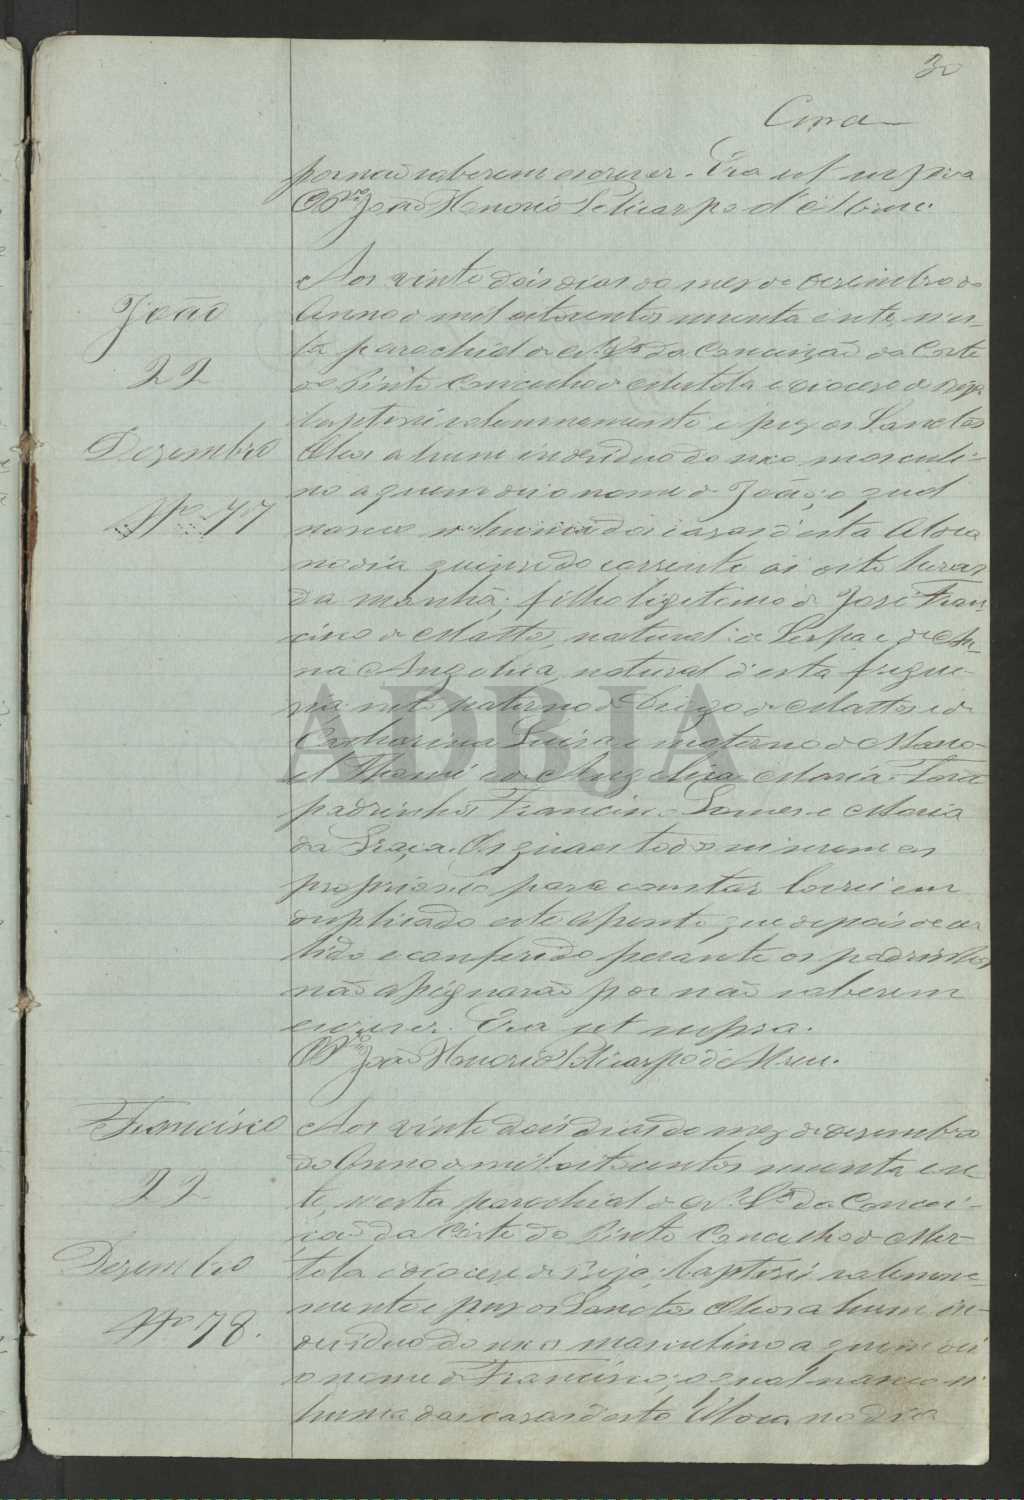 30
por não saberem escrever. Era ut supra
O Pro João Honorio Policarpo d'Abreu.
João
22
Dezembro
No 77
Aos vinte dois dias do mez de Dezembro do
Anno de mil oitocentos noventa e sete, nes-
ta parochial de N. Sra da Conceição da Corte
do Pinto Concelho de Mertola e diocese de Beja
baptisei solemnemente e puz os Sanctos
Oleos a hum individuo do sexo masculi-
no a quem dei o nome de João; o qual
nasceo n'huma das casas d'esta Aldea
no dia quinze do corrente ás oito horas
da manhã; filho legitimo de José Fran-
cisco de Mattos, natural de Serpa e de An-
na Angelica, natural d'esta fregue-
sia neto paterno de Diogo de Mattos e de
Catharina Luisa e materno de Mano-
el Thomé e de Angelica Maria. Forão
padrinhos Francisco Gomes e Maria
da Graça. Os quaes todos conheço serem os
proprios e para constar lavrei em
duplicado este assento que depois de ser
lido e conferido perante os padrinhos
não assignarão por não saberem
escrever. Era ut supra.
O Pro João Honorio Policarpo d'Abreu.
Francisco
22
Dezembro
No 78.
Aos vinte dois dias do mez de dezembro
do Anno de mil oitocentos noventa e se-
te, nesta parochial de N. Sra da Concei-
ção da Corte do Pinto Concelho de Mer-
tola e diocese de Beja; baptisei solemne-
mente e puz os Sanctos Oleos a hum in-
dividuo do sexo masculino a quem dei
o nome de Francisco; o qual nasceo n'
huma das casas d'esta Aldea no dia
ADBJA